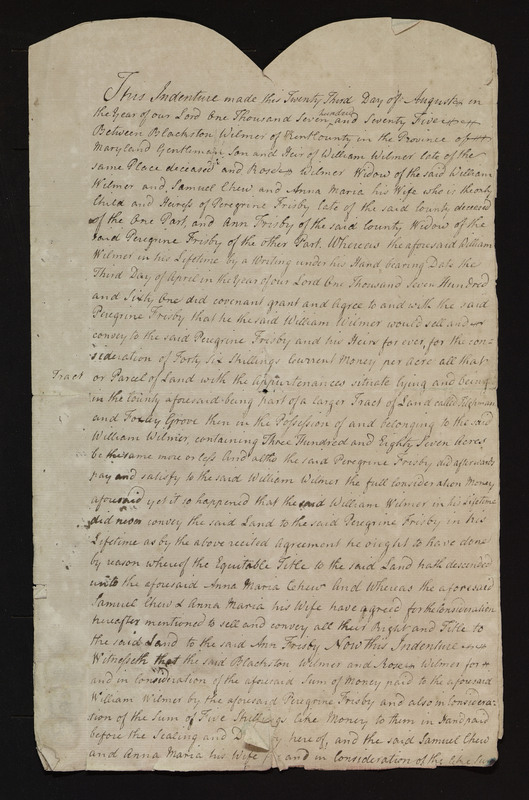 This Indenture made this Twenty Third Day of August in
the Year of our Lord One Thousand Seven hundred and Seventy Five
Between Blackston Wilmer of Kent County in the Province of
Maryland Gentleman Son and Heir of William Wilmer late of the
same Place deceased and Rose Wilmer Widow of the said William
Wilmer and Samuel Chew and Anna Maria his Wife who is the only
Child and Heiress of Peregrine Frisby late of the said County deceased
of the One Part and Ann Frisby of the said County Widow of the
said Peregrine Frisby of the other Part. Whereas the aforesaid William
Wilmer in his Lifetime by a Writing under his Hand bearing Date the
Third Day of April in the Year of our Lord One Thousand Seven Hundred
and Sixty One did covenant grant and agree to and with the said
Peregrine Frisby that he the said William Wilmer would sell and
convey to the said Peregrine Frisby and his Heirs for ever, for the con-
sideration of Forty Six Shillings Current Money per Acre all that
Tract or Parcel of Land with the appurtenances situate lying and being
in the County aforesaid being part of a larger Tract of Land called
and Forley Grove then in the Possession of and belonging to the said
William Wilmer, containing Three Hundred and Eighty Seven Acres
be the same more or less And altho the said Peregrine Frisby did afterwards
pay and satisfy to the said William Wilmer the full Consideration Money
aforesaid yet it so happened that the said William Wilmer in his Lifetime
did never convey the said Land to the said Peregrine Frisby in his
Lifetime as by the above recited Agreement he ought to have done
by reason whereof the Equitable Title to the said Land hath descended
unto the aforesaid Anna Maria Chew And Whereas the aforesaid
Samuel Chew & Anna Maria his Wife have agreed for the Consideration
hereafter mentioned to sell and convey all their Right and Title to
the said Land to the said Ann Frisby Now this Indenture
Witnesseth that the said Blackston Wilmer and Rose Wilmer for
and in Consideration of the aforesaid Sum of Money paid to the aforesaid
William Wilmer by the aforesaid Peregrine Frisby and also in Considera-
tion of the Sum of Five Shillings like Money to them in Hand paid
before the Sealing and D y hereof, and the said Samuel Chew
and Anna Maria his Wife and in Consideration of the like